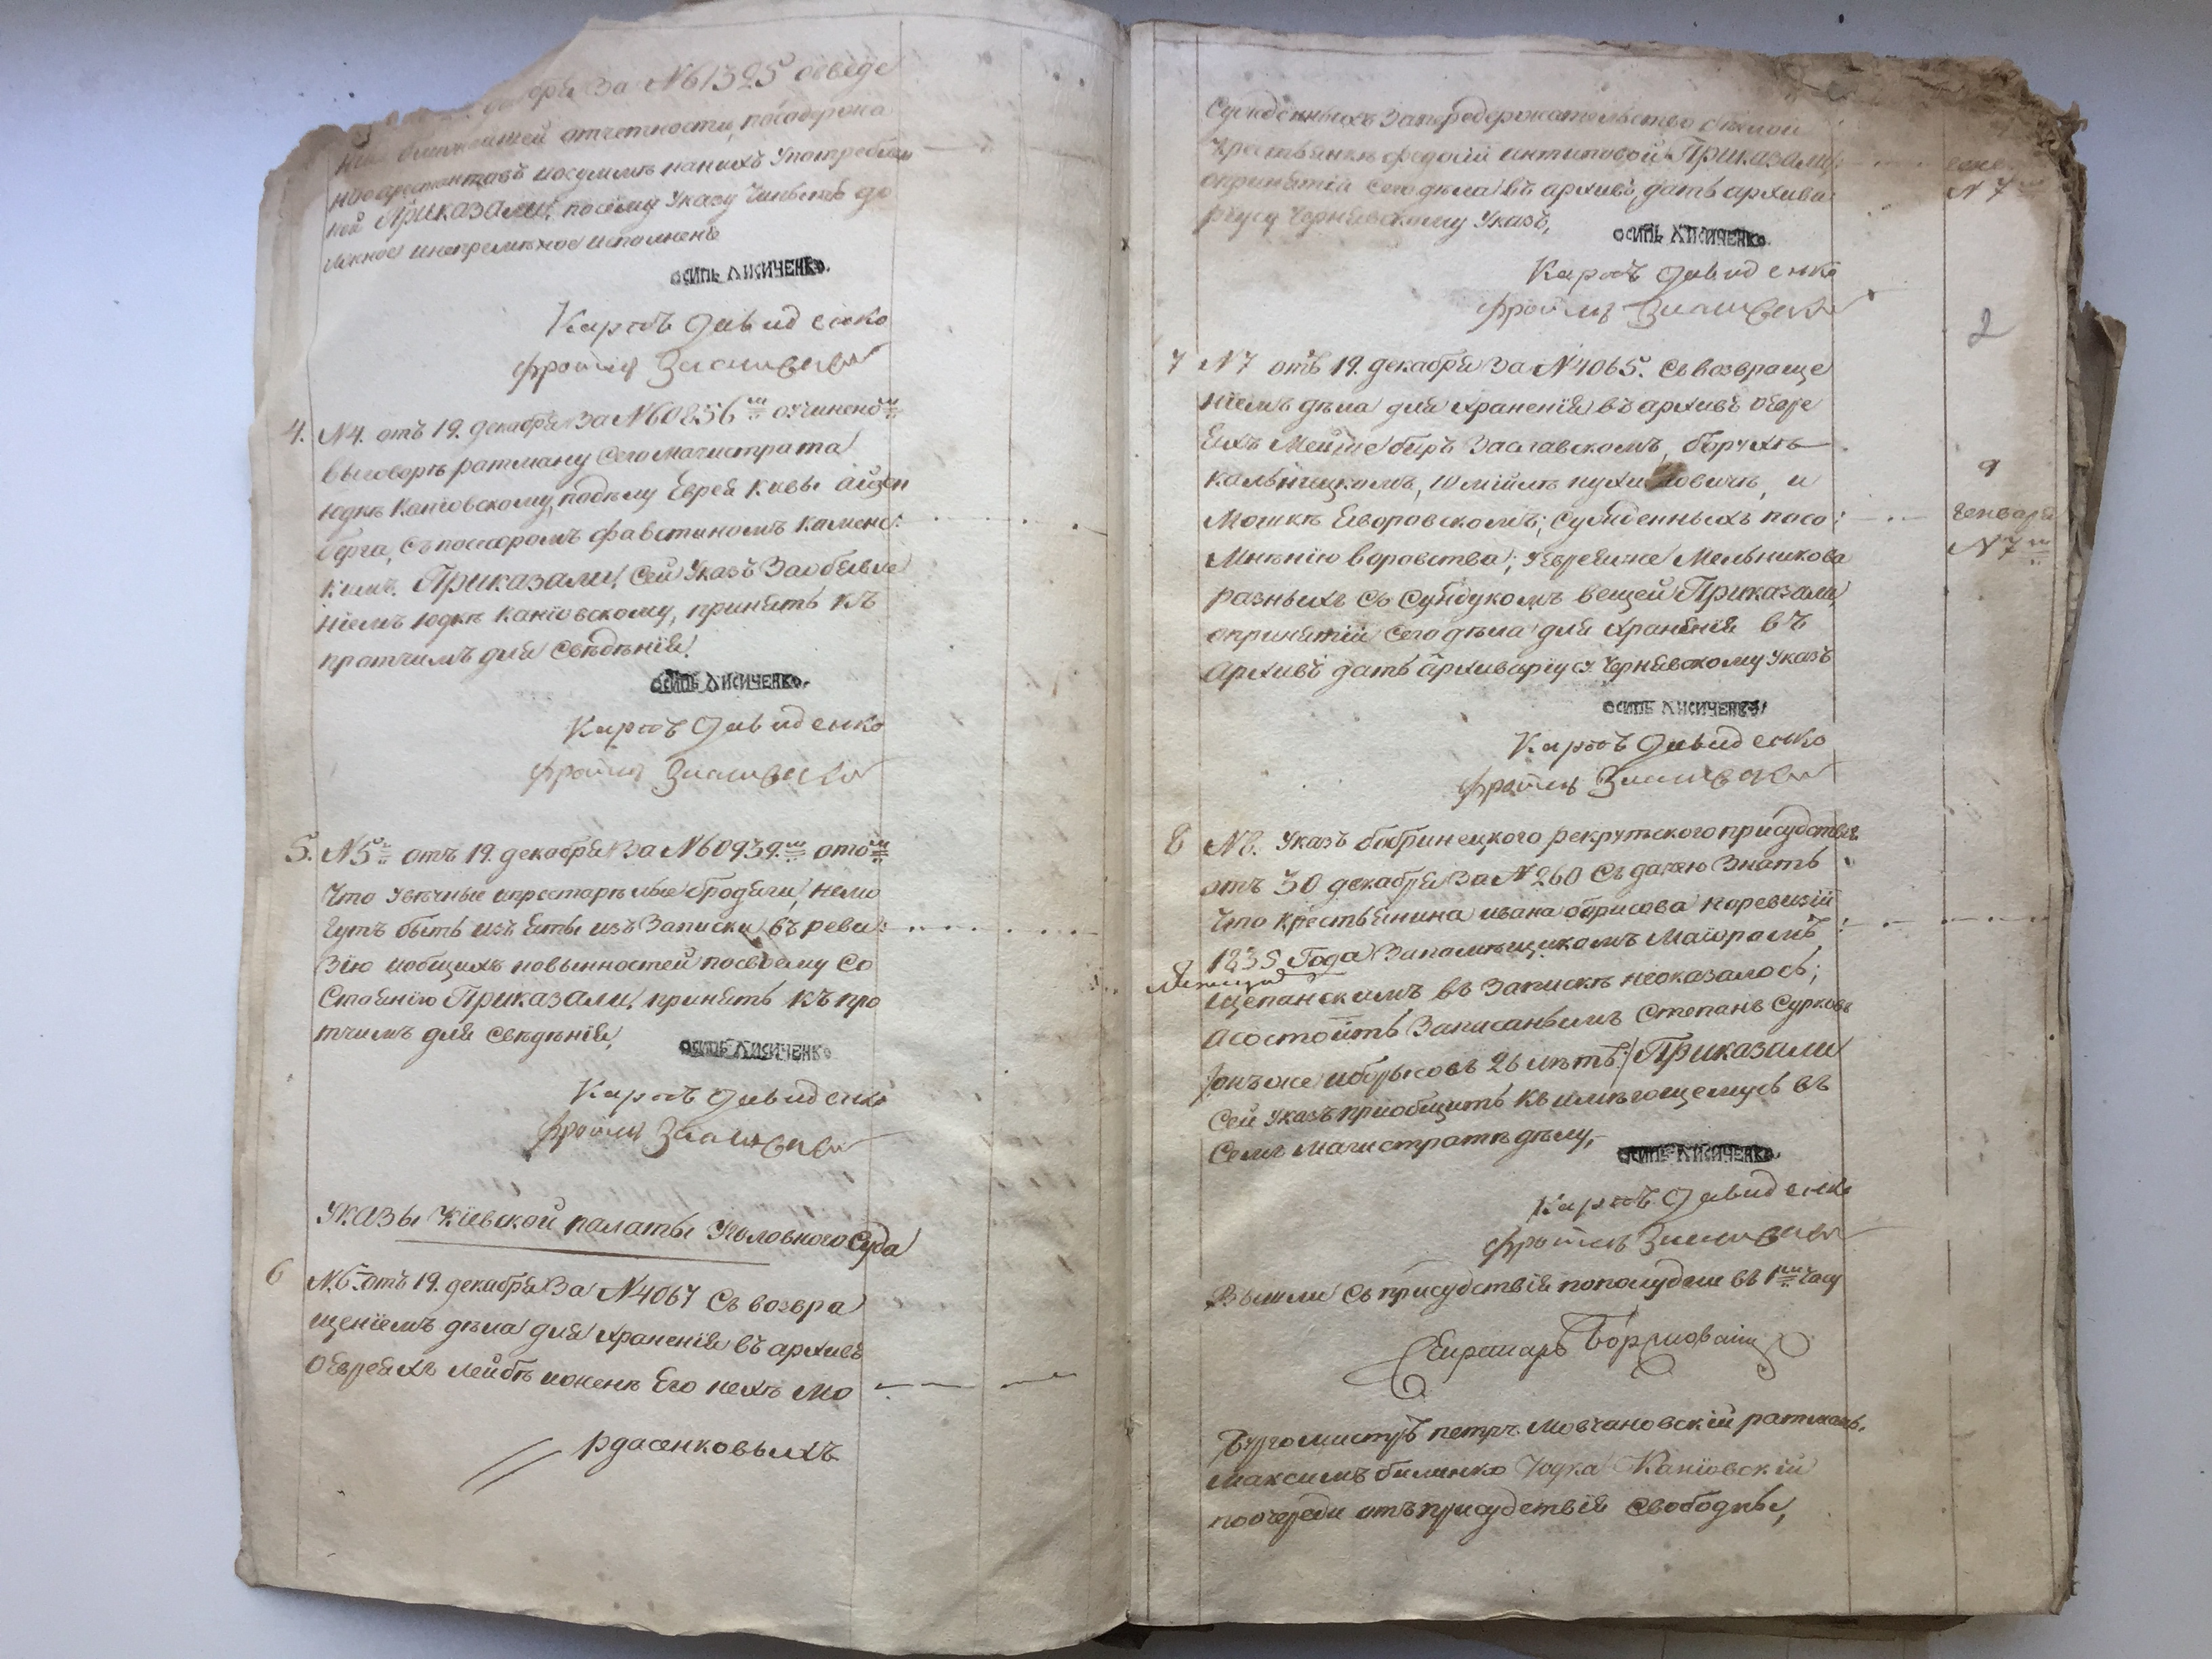 за №61325 о введе
отчетности, по содержа
нію арестантовъ и о суммѣ на нихъ употреблен
ной Приказали: по сему Указу чинить до
лжное и непремѣнное исполненіе
ОСИПЪ ЛИСИЧЕНКО.
Карпъ Давиденко
4. №4. отъ 19. декабря За №60856м о учинено
выговорѣ ратману сего магистрата
Юдкѣ Каніовскому, по дѣлу Еврея Кивы Айзен
берга, съ посесоромъ Фавстиномъ Каменс:
кимъ. Приказали: Сей Указъ За объявле
ніемъ Юдкѣ Каніовскому, принять къ
протчимъ для Свѣдѣнія.
ОСИПЪ ЛИСИЧЕНКО.
Карпъ Давиденко
5. №5й отъ 19. декабря За №60939.м о томъ
Что увѣчные и престарѣлые бродяги, немо
гутъ быть изъЕяты изъ Записки въ реви:
Зію и общихъ повинностей по своему Со
Стоянію Приказали: принять къ про
тчимъ для свѣдѣнія,
ОСИПЪ ЛИСИЧЕНКО
Карпъ Давиденко
Указы Кіевской палаты Уголовного Суда
6 №6. отъ 19. декабря За №4067 Съ возвра
щеніемъ дѣла для Храненія въ архивѣ
О Евреяхъ Лейбѣ и женѣ Его Нехѣ Мо
рдасенковыхъ
Сужденныхъ За передержательство бѣглой
Крестьянки Федосіи Антиповой Приказали:
о принятіи сего дѣла въ архивъ, дать архива:
ріусу Чернявскому Указъ,
ОСИПЪ ЛИСИЧЕНКО.
Карпъ Давиденко
№ 7
2
7 №7 отъ 19. декабря За №4065. Съ возвраще
ніемъ дѣла для Храненія въ архивѣ о Евре
Еяхъ Мейше бирѣ Заславскомъ, Борухѣ
Кальницкомъ, Шмійлѣ и
Мошкѣ Еворовскомъ; сужденныхъ по со:
Мнѣнію воровства, у Евреина Мельникова
разныхъ съ Сундукомъ вещей Приказали,
о принятіи сего дѣла для Храненія въ
Архивъ дать архиваріусу Чернявскому Указъ
9
Генваря
№ 7м
ОСИПЪ ЛИСИЧЕНКО
Карпъ Давиденко
8 №8. Указъ бобринецкого рекрутского присудствія
отъ 30 декабря За №260 Съ дачею Знать
Что Крестьянина Ивана Борисова по ревизіи
1835 Года За помѣщикомъ Маіоромъ
Щепанскимъ въ Запискѣ неоказалось;
а состоитъ Записанымъ Степанъ Сурковъ
/онъ же и Борисовъ 26 лѣтъ:/ Приказали
Сей Указъ пріобщить къ имѣющемуся въ
Семъ Магистратѣ дѣлу,
ОСИПЪ ЛИСИЧЕНКО.
Карпъ Давиденко
Вышли Съ присудствія по полудни въ 1м часу
Секретарь
Бургомистръ Петръ Мовчановскій ратманъ.
Максимъ Билинко Юдка Каніовскій
по очереди отъ присудствія Свободны,